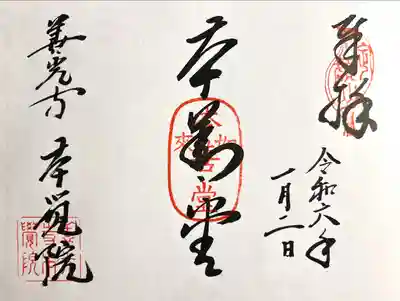 奉拝
令和六年
一月二日
本 堂
善光寺 本覚院